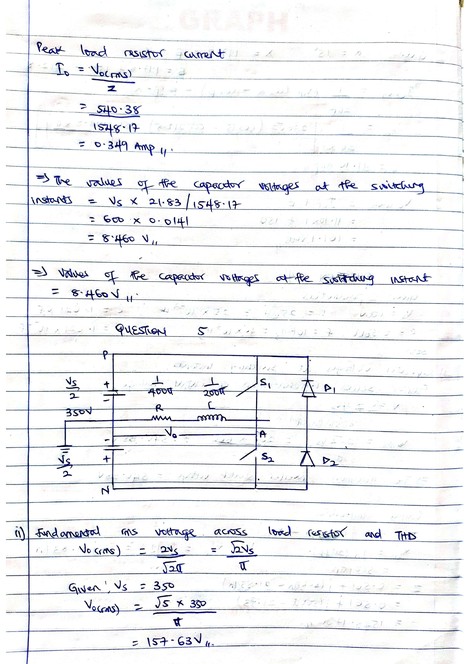 Peak load resistor current
I₀ = Vo(rms) / Z
= 540.38 / 1548.17
= 0.349 Amp,,
⇒ The values of the capacitor voltages at the switching
instants = Vs × 21.83 / 1548.17
= 600 × 0.0141
= 8.460 V,,
⇒ Values of the capacitor voltages at the switching instant
= 8.460 V,,
QUESTION 5
P
Vs/2
+
-
1/400π
1/200π
S₁
D₁
350V
R
L
Vo
A
-
+
Vs/2
S₂
D₂
N
ii) Fundamental rms voltage across load resistor and THD
Vo(rms) = 2Vs / √2π = √2Vs / π
Given; Vs = 350
Vo(rms) = √5 × 350 / π
= 157.63V,,